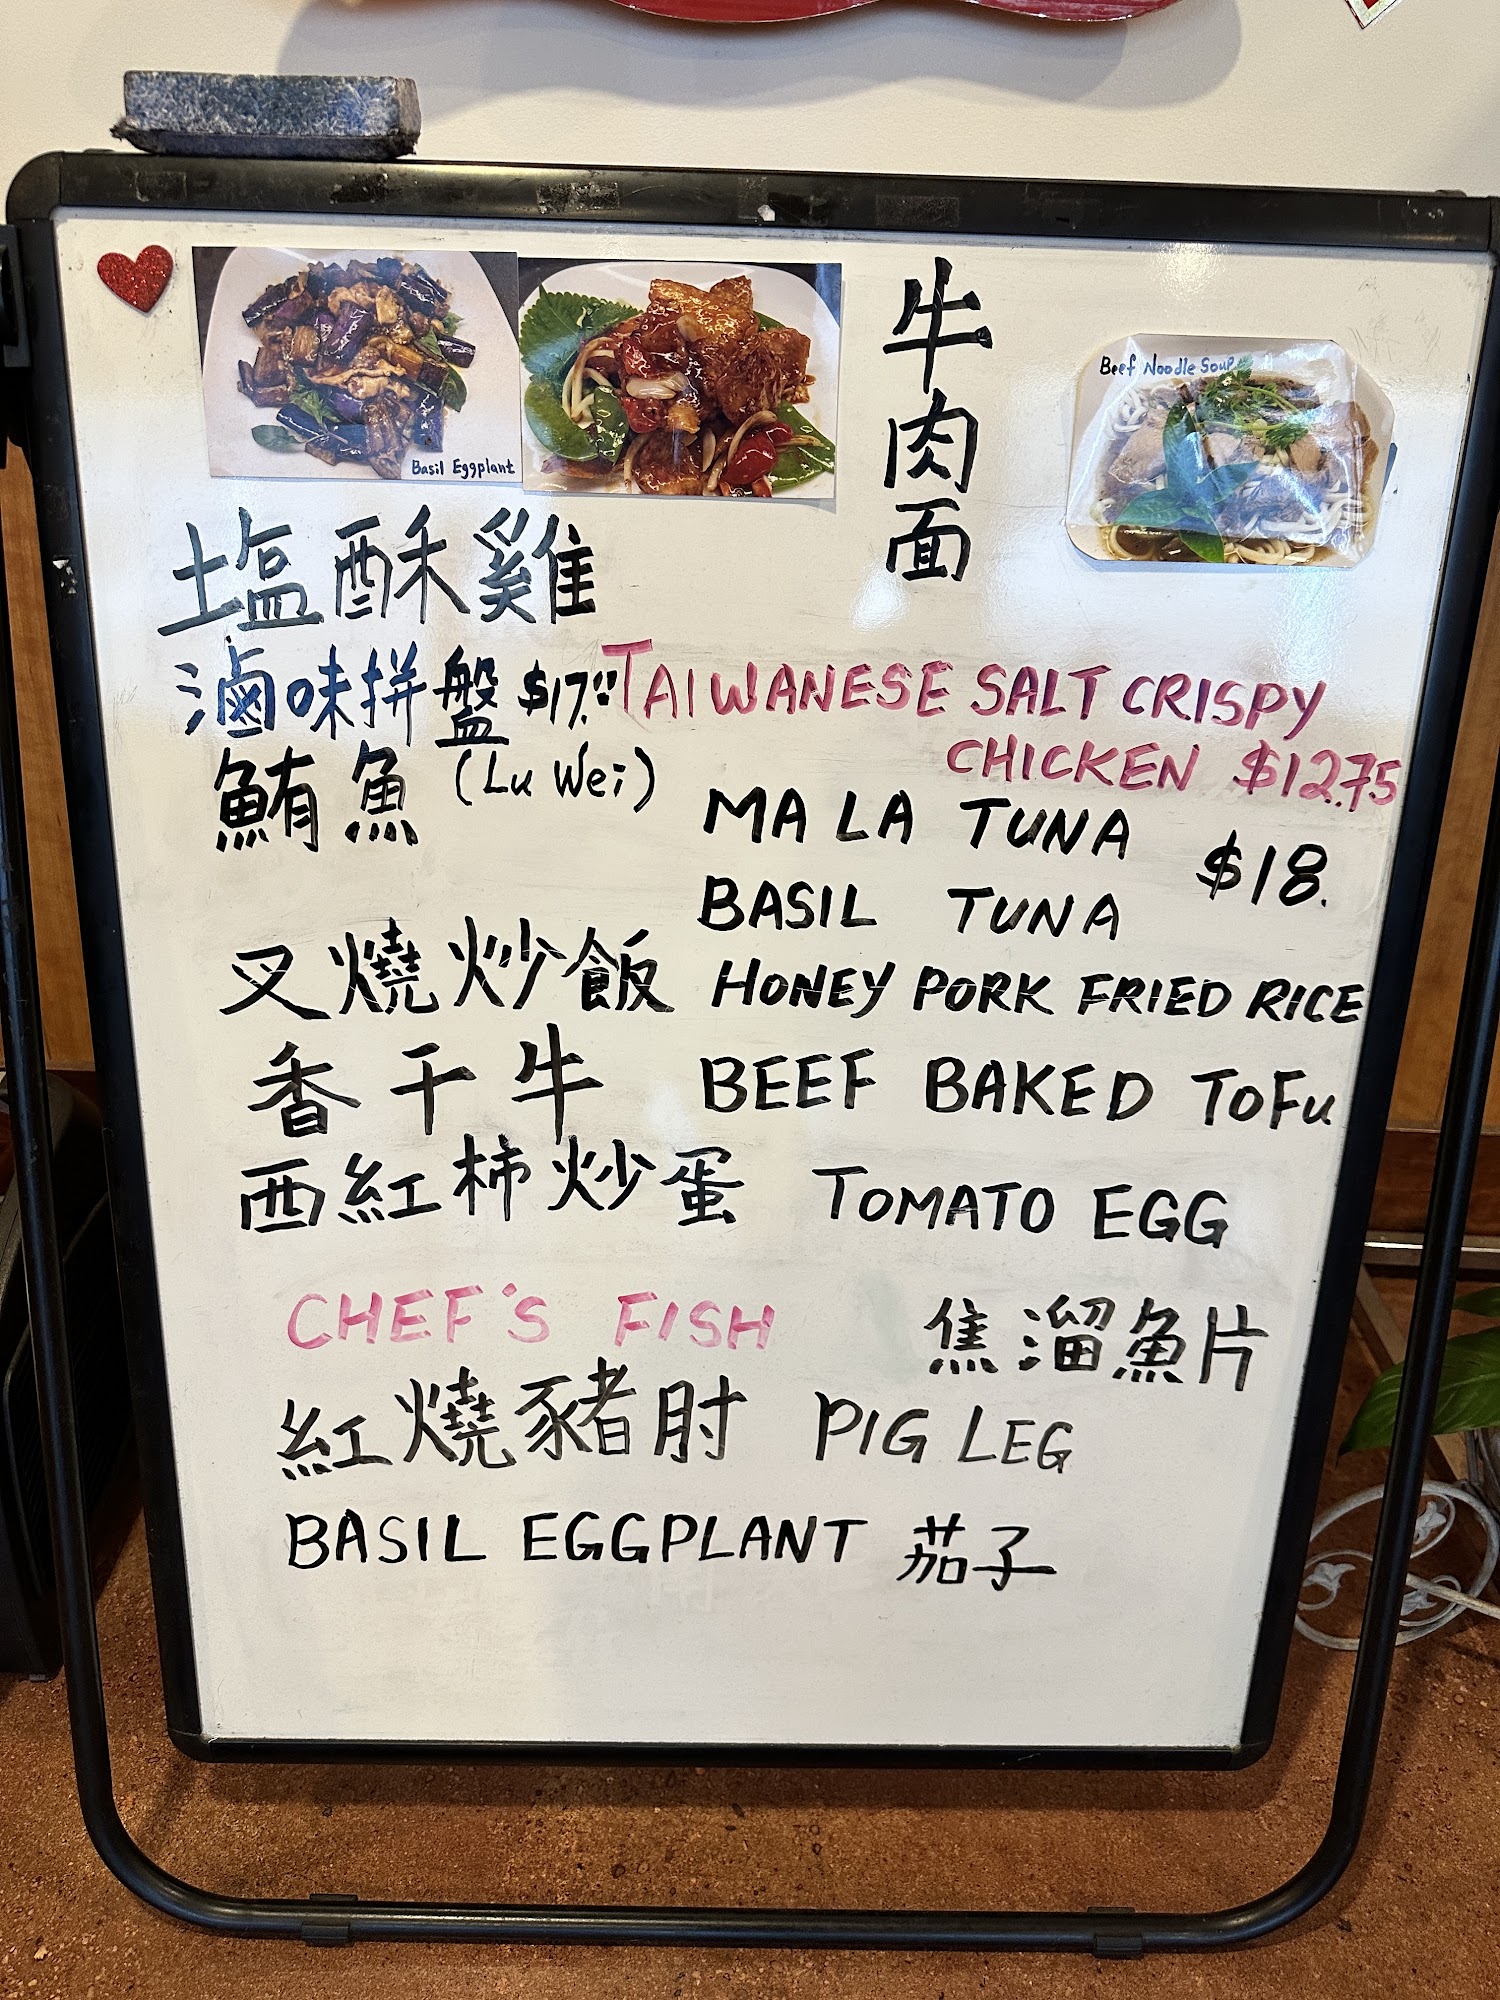 Basil Eggplant
牛肉面
Beef Noodle Soup
塩酥雞
滷味拼盤 $17.00 TAIWANESE SALT CRISPY
CHICKEN $12.75
鮪魚 (Lu Wei)
MA LA TUNA
$18.
BASIL TUNA
叉燒炒飯 HONEY PORK FRIED RICE
香干牛 BEEF BAKED TOFU
西紅柿炒蛋 TOMATO EGG
CHEF'S FISH 焦溜魚片
紅燒豬肘 PIG LEG
BASIL EGGPLANT 茄子